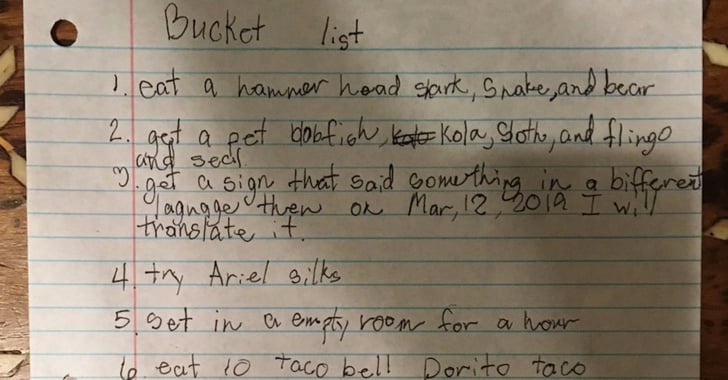 Bucket list
1. eat a hammer head shark, Snake, and bear
2. get a pet blobfish, Kola, Sloth, and flingo
and seal.
3. get a sign that said something in a bifferent
lagnage then on Mar, 12, 2019 I will
translate it.
4. try Ariel silks
5. set in a empty room for a hour
6. eat 10 taco bell Dorito taco